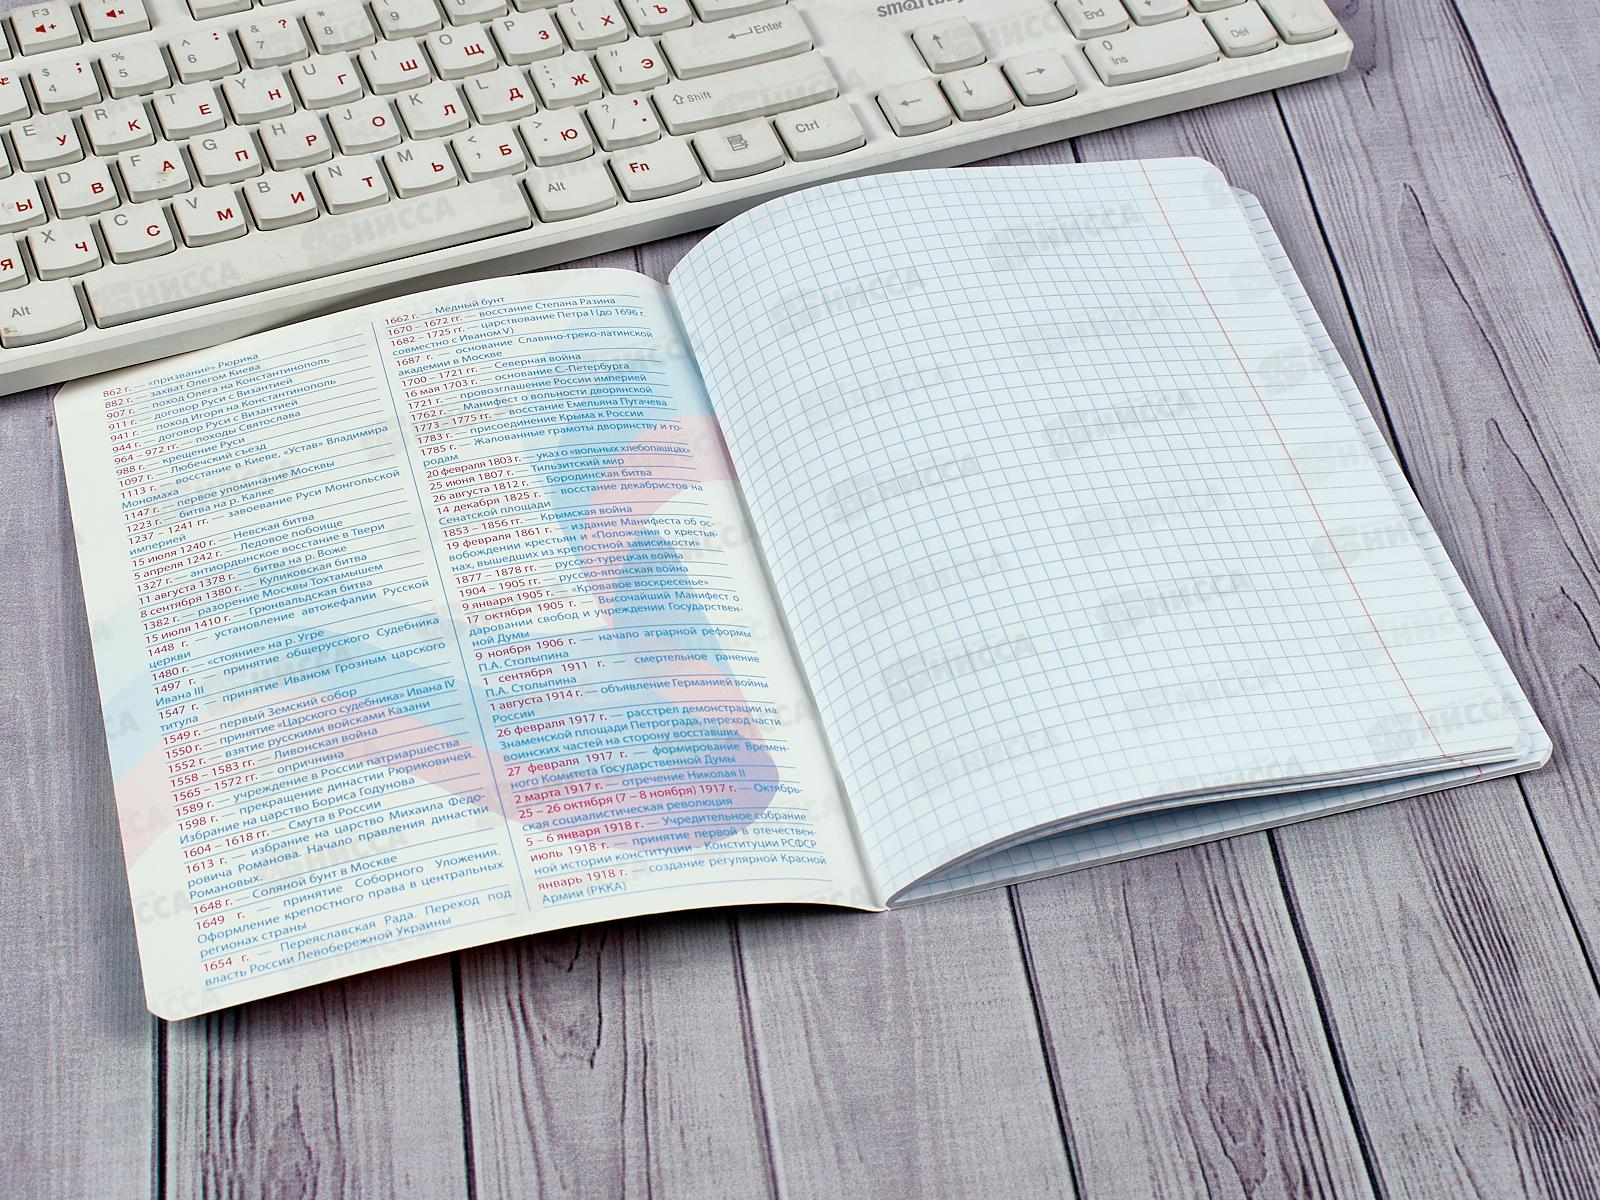 862 г. — «призвание» Рюрика
882 г. — захват Олегом Киева
907 г. — поход Олега на Константинополь
911 г. — договор Руси с Византией
941 г. — поход Игоря на Константинополь
944 г. — договор Руси с Византией
964 – 972 гг. — походы Святослава
988 г. — крещение Руси
1097 г. — Любечский съезд
1113 г. — восстание в Киеве, «Устав» Владимира
Мономаха
1147 г. — первое упоминание Москвы
1223 г. — битва на р. Калке
1237 – 1241 гг. — завоевание Руси Монгольской
империей
15 июля 1240 г. — Невская битва
5 апреля 1242 г. — Ледовое побоище
1327 г. — антиордынское восстание в Твери
11 августа 1378 г. — битва на р. Воже
8 сентября 1380 г. — Куликовская битва
1382 г. — разорение Москвы Тохтамышем
15 июля 1410 г. — Грюнвальдская битва
1448 г. — установление автокефалии Русской
церкви
1480 г. — «стояние» на р. Угре
1497 г. — принятие общерусского Судебника
Ивана III
1547 г. — принятие Иваном Грозным царского
титула
1549 г. — первый Земский собор
1550 г. — принятие «Царского судебника» Ивана IV
1552 г. — взятие русскими войсками Казани
1558 – 1583 гг. — Ливонская война
1565 – 1572 гг. — опричнина
1589 г. — учреждение в России патриаршества
1598 г. — прекращение династии Рюриковичей.
Избрание на царство Бориса Годунова
1604 – 1618 гг. — Смута в России
1613 г. — избрание на царство Михаила Федо-
ровича Романова. Начало правления династии
Романовых.
1648 г. — Соляной бунт в Москве
1649 г. — принятие Соборного Уложения.
Оформление крепостного права в центральных
регионах страны
1654 г. — Переяславская Рада. Переход под
власть России Левобережной Украины
1662 г. — Медный бунт
1670 – 1672 гг. — восстание Степана Разина
1682 – 1725 гг. — царствование Петра I (до 1696 г.
совместно с Иваном V)
1687 г. — основание Славяно-греко-латинской
академии в Москве
1700 – 1721 гг. — Северная война
16 мая 1703 г. — основание С.-Петербурга
1721 г. — провозглашение России империей
1762 г. — Манифест о вольности дворянской
1773 – 1775 гг. — восстание Емельяна Пугачева
1783 г. — присоединение Крыма к России
1785 г. — Жалованные грамоты дворянству и го-
родам
20 февраля 1803 г. — указ о «вольных хлебопашцах»
25 июня 1807 г. — Тильзитский мир
26 августа 1812 г. — Бородинская битва
14 декабря 1825 г. — восстание декабристов на
Сенатской площади
1853 – 1856 гг. — Крымская война
19 февраля 1861 г. — издание Манифеста об ос-
вобождении крестьян и «Положения о крестья-
нах, вышедших из крепостной зависимости»
1877 – 1878 гг. — русско-турецкая война
1904 – 1905 гг. — русско-японская война
9 января 1905 г. — «Кровавое воскресенье»
17 октября 1905 г. — Высочайший Манифест о
даровании свобод и учреждении Государствен-
ной Думы
9 ноября 1906 г. — начало аграрной реформы
П.А. Столыпина
1 сентября 1911 г. — смертельное ранение
П.А. Столыпина
1 августа 1914 г. — объявление Германией войны
России
26 февраля 1917 г. — расстрел демонстрации на
Знаменской площади Петрограда, переход части
воинских частей на сторону восставших
27 февраля 1917 г. — формирование Времен-
ного Комитета Государственной Думы
2 марта 1917 г. — отречение Николая II
25 – 26 октября (7 – 8 ноября) 1917 г. — Октябрь-
ская социалистическая революция
5 – 6 января 1918 г. — Учредительное собрание
июль 1918 г. — принятие первой в отечествен-
ной истории конституции – Конституции РСФСР
январь 1918 г. — создание регулярной Красной
Армии (РККА)
Enter
Shift
Ctrl
Alt
Fn
Alt
End
0
Ins
Del
F3